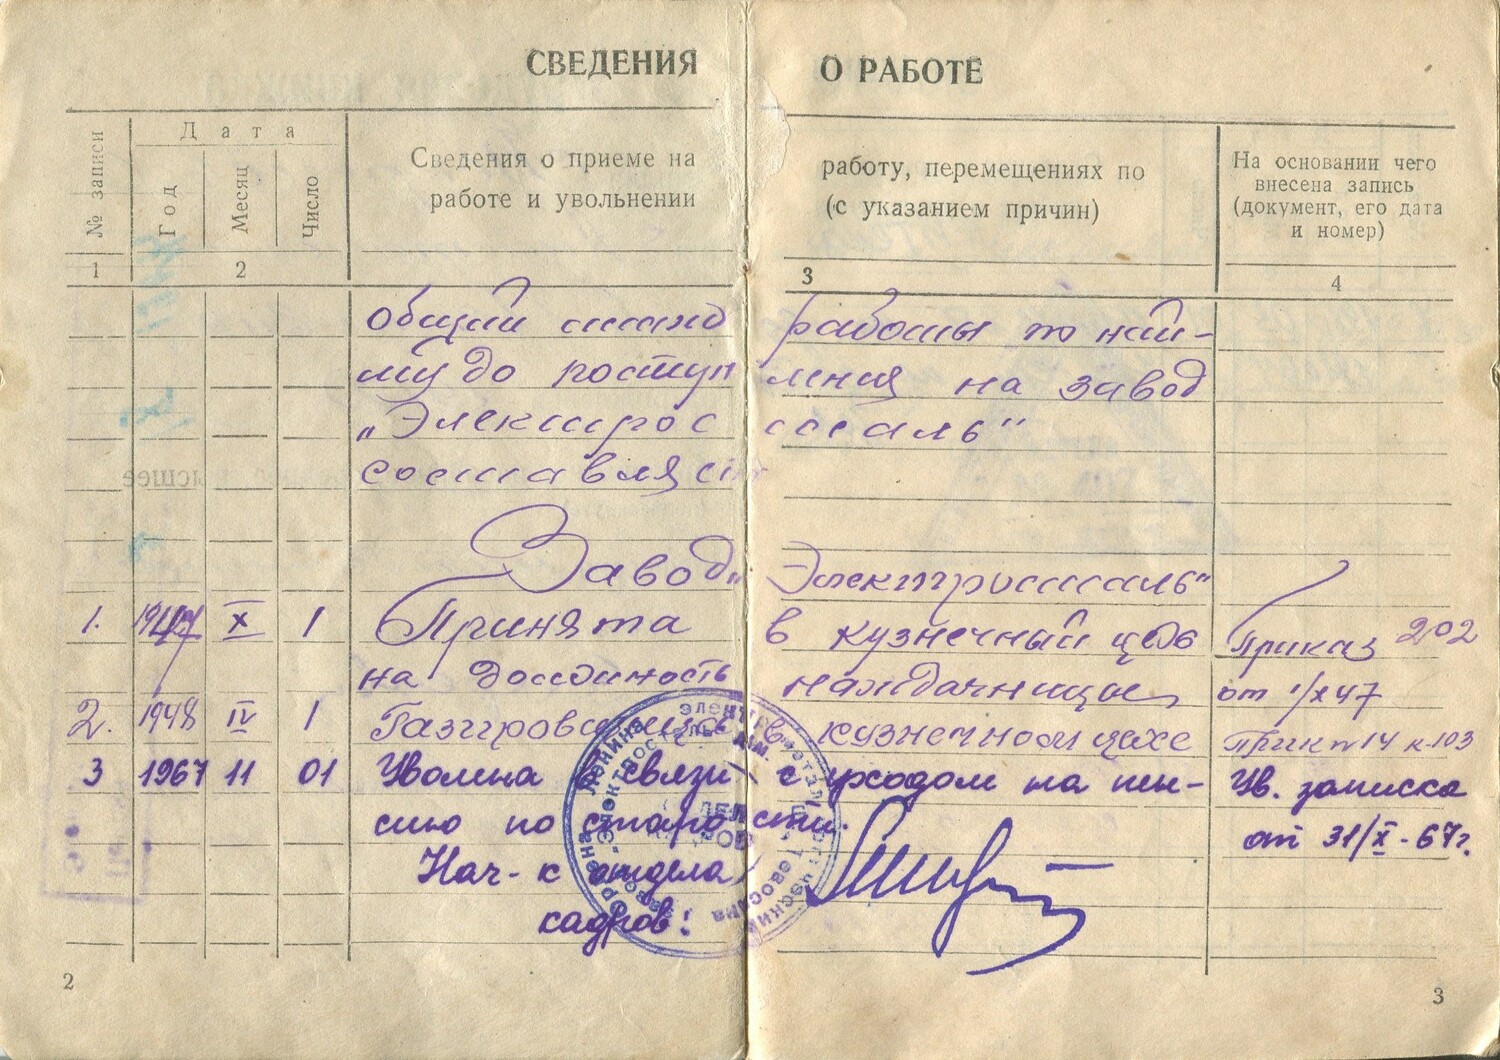 СВЕДЕНИЯ О РАБОТЕ
№ записи
Дата
Год
Месяц
Число
Сведения о приеме на работу, перемещениях по
работе и увольнении (с указанием причин)
На основании чего
внесена запись
(документ, его дата
и номер)
1 2 3 4
общий стаж работы по най-
му до поступления на завод
„Электросталь"
составляет
Завод „Электросталь"
1. 1947 X 1 Принята в кузнечный цех Приказ 202
на должность наждачницы от 1/X 47
2. 1948 IV 1 Газировщица в кузнечном цехе Прик 14 к-103
3 1967 11 01 Уволена в связи с уходом на пен- Ув. записка
сию по старости. от 31/X-67г.
Нач-к отдела
кадров:
2
3